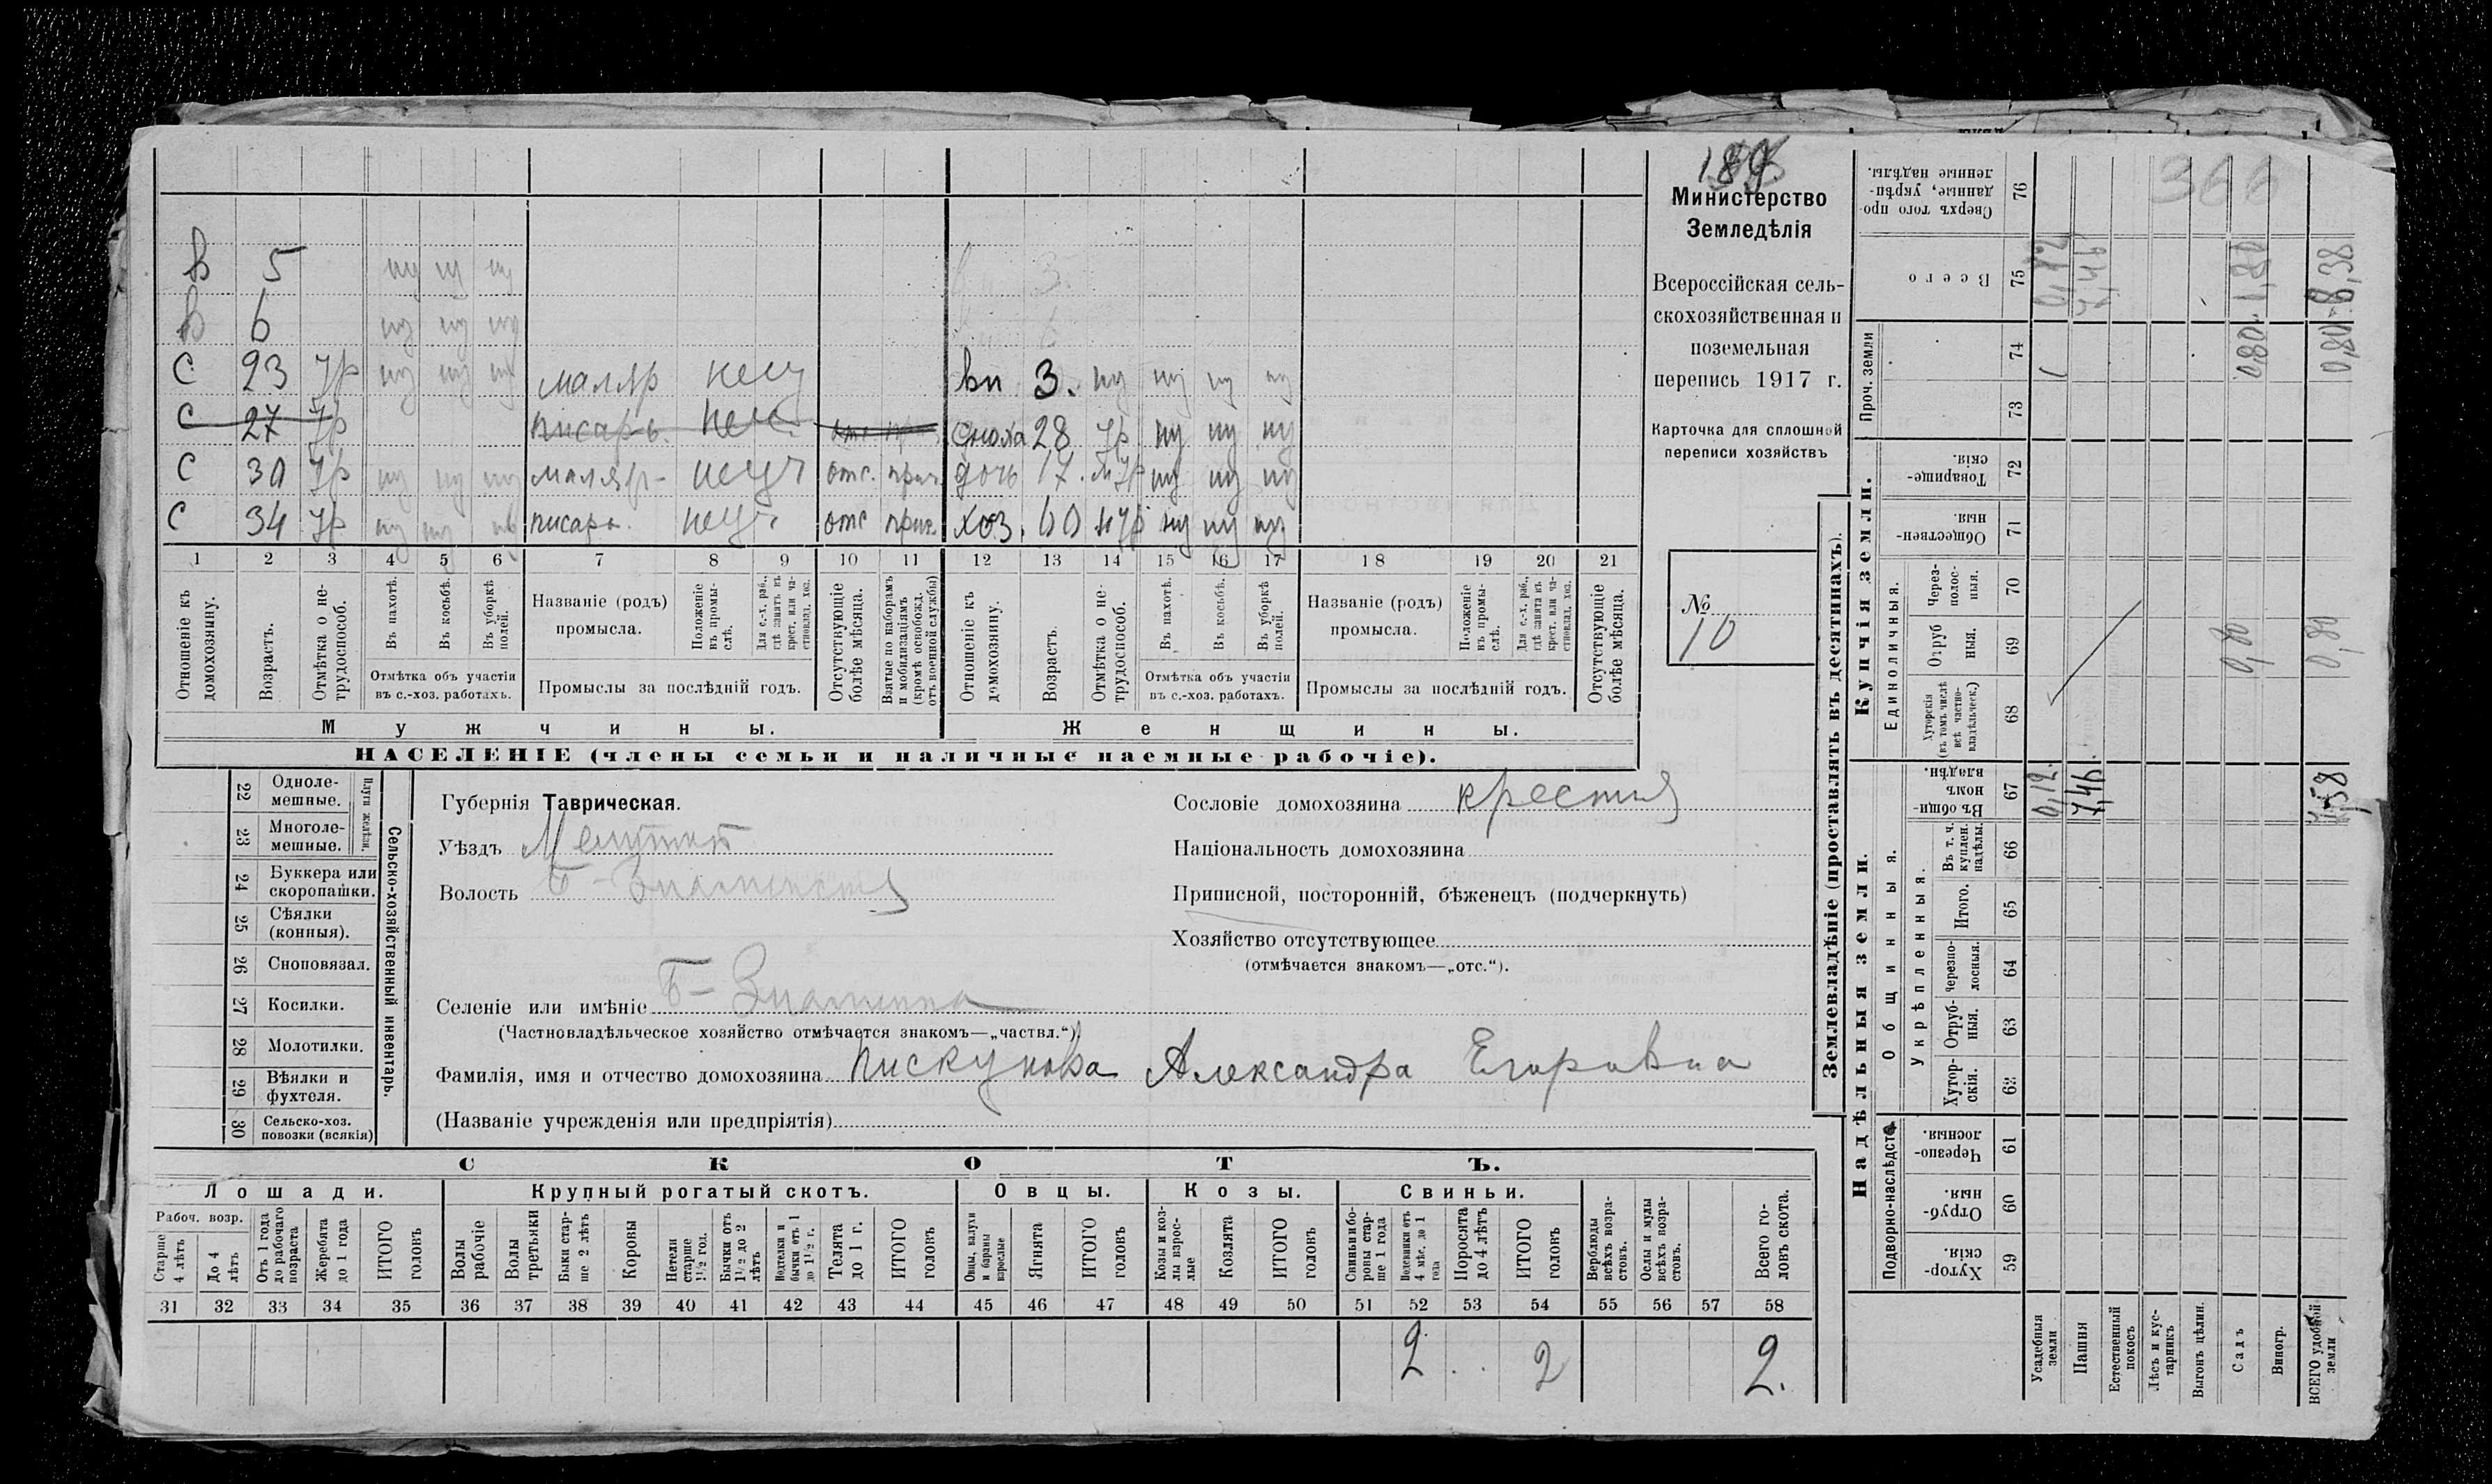 Министерство
Земледѣлія
Всероссійская сель-
скохозяйственная и
поземельная
перепись 1917 г.
Карточка для сплошной
переписи хозяйствъ
№
10
в 5
в 6
с 23 маляр вн 3.
с 27 писарь сноха 28
с 30 маляр отс. дочь 17.
с 34 писарь отс хоз. 60
1 2 3 4 5 6 7 8 9 10 11 12 13 14 15 16 17 18 19 20 21
Отношеніе къ домохозяину.
Возрастъ.
Отмѣтка о не-трудоспособ.
Въ пахотѣ.
Въ косьбѣ.
Въ уборкѣ полей.
Отмѣтка объ участіи
въ с.-хоз. работахъ.
Названіе (родъ)
промысла.
Положеніе въ промы-слѣ.
Для с.-х. раб., гдѣ занятъ въ крест. или ча-стновлад. хоз.
Промыслы за послѣдній годъ.
Отсутствующіе болѣе мѣсяца.
Взятые по наборамъ и мобилизаціямъ (кромѣ освобожд. отъ военной службы)
Отношеніе къ домохозяину.
Возрастъ.
Отмѣтка о не-трудоспособ.
Въ пахотѣ.
Въ косьбѣ.
Въ уборкѣ полей.
Отмѣтка объ участіи
въ с.-хоз. работахъ.
Названіе (родъ)
промысла.
Положеніе въ промы-слѣ.
Для с.-х. раб., гдѣ занятъ въ крест. или ча-стновлад. хоз.
Промыслы за послѣдній годъ.
Отсутствующіе болѣе мѣсяца.
Мужчины. Женщины.
НАСЕЛЕНІЕ (члены семьи и наличные наемные рабочіе).
Сельско-хозяйственный инвентарь.
Плуги желѣзн.
22 Одноле-мешные.
23 Многоле-мешные.
24 Буккера или скоропашки.
25 Сѣялки (конныя).
26 Сноповязал.
27 Косилки.
28 Молотилки.
29 Вѣялки и фухтеля.
30 Сельско-хоз. повозки (всякія)
Губернія Таврическая.
Уѣздъ Мелитоп
Волость Б-Знаменск
Селеніе или имѣніе Б-Знаменка
(Частновладѣльческое хозяйство отмѣчается знакомъ—„частвл.“).
Фамилія, имя и отчество домохозяина Пискунова Александра Егоровна
(Названіе учрежденія или предпріятія)
Сословіе домохозяина крестья
Національность домохозяина
Приписной, посторонній, бѣженецъ (подчеркнуть)
Хозяйство отсутствующее
(отмѣчается знакомъ—„отс.“).
СКОТЪ.
Лошади. Крупный рогатый скотъ. Овцы. Козы. Свиньи.
Рабоч. возр.
Старше 4 лѣтъ
До 4 лѣтъ
Отъ 1 года до рабочаго возраста
Жеребята до 1 года
ИТОГО головъ
Волы рабочіе
Волы третьяки
Быки стар-ше 2 лѣтъ
Коровы
Нетели старше 1½ год.
Бычки отъ 1½ до 2 лѣтъ
Подтелки и бычки отъ 1 до 1½ г.
Телята до 1 г.
ИТОГО головъ
Овцы, валухи и бараны взрослые
Ягнята
ИТОГО головъ
Козы и коз-лы взрос-лые
Козлята
ИТОГО головъ
Свиньи и бо-ровы стар-ше 1 года
Подсвинки отъ 4 мѣс. до 1 года
Поросята до 4 лѣтъ
ИТОГО головъ
Верблюды всѣхъ возра-стовъ.
Ослы и мулы всѣхъ возра-стовъ.
Всего го-ловъ скота.
31 32 33 34 35 36 37 38 39 40 41 42 43 44 45 46 47 48 49 50 51 52 53 54 55 56 57 58
2 2 2.
Землевладѣніе (проставлять въ десятинахъ).
Сверхъ того про-данные, укрѣп-ленные надѣлы. 76
Всего 75 0,12 7,46 1,80 8,38
Проч. земли 74 73
0,80 0,80
Купчія земли.
Товарище-скія. 72
Обществен-ныя. 71
Единоличныя.
Через-полос-ныя. 70
Отруб ныя. 69
0,80 0,80
Хуторскія (въ томъ числѣ всѣ частно-владѣльческ.) 68
Надѣльныя земли.
Общинныя.
Въ общи-номъ владѣн. 67 0,12. 7,46. 7,58
Укрѣпленныя.
Въ т. ч. куплен. надѣлы. 66
Итого. 65
черезпо-лосныя. 64
Отруб-ныя. 63
Хутор-скія. 62
Подворно-наслѣдств.
Черезпо-лосныя. 61
Отруб-ныя. 60
Хутор-скія. 59
Усадебныя земли
Пашня
Естественный покосъ
Лѣсъ и кус-тарникъ
Выгонъ цѣлин.
Садъ
Виногр.
ВСЕГО удобной земли
366